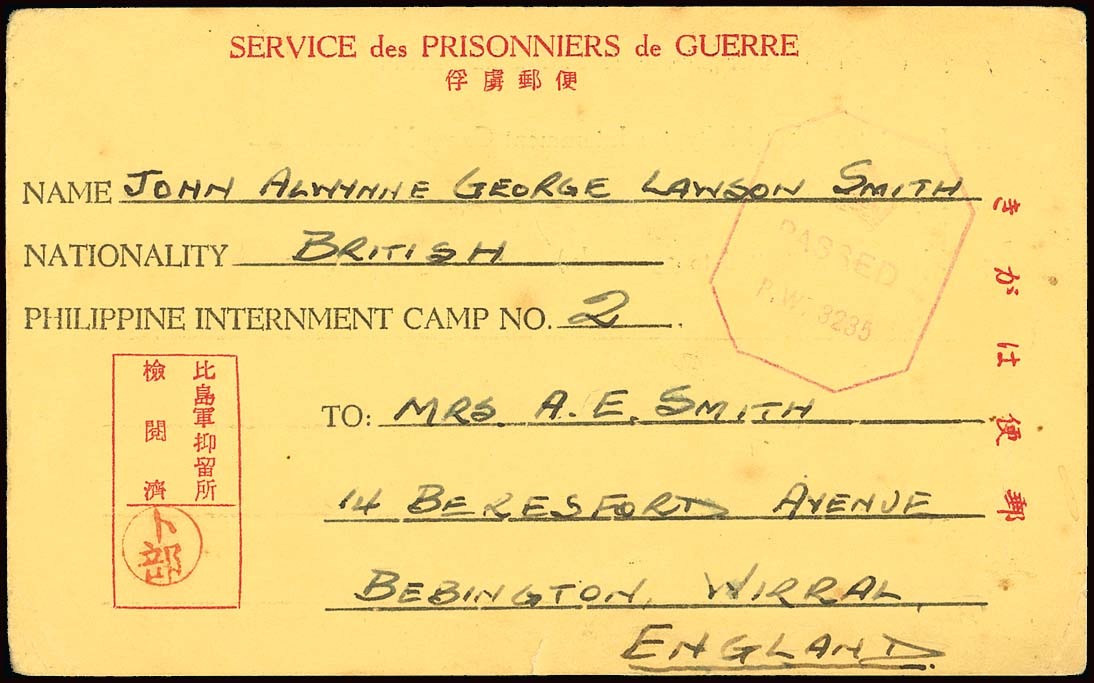 SERVICE des PRISONNIERS de GUERRE
俘虜郵便
NAME JOHN ALWYNNE GEORGE LAWSON SMITH
NATIONALITY BRITISH
PHILIPPINE INTERNMENT CAMP NO. 2.
PASSED
P.W. 3235
郵便はがき
比島軍抑留所
檢閲濟
卜部
TO: MRS. A. E. SMITH
14 BERESFORD AVENUE
BEBINGTON, WIRRAL,
ENGLAND.